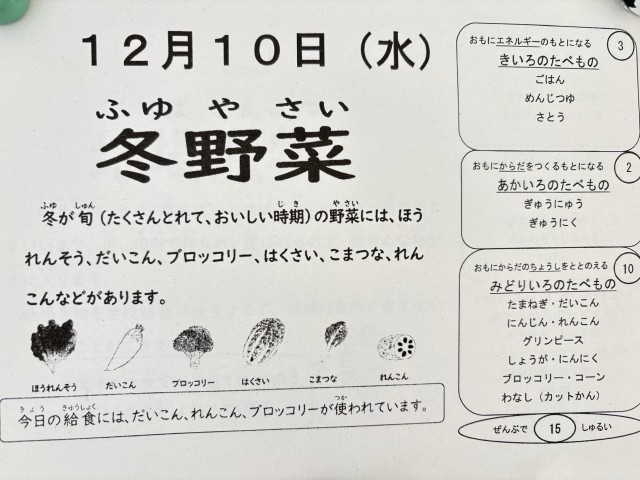 12月10日（水）
ふゆ や さい
冬野菜
ふゆ しゅん じき やさい
冬が旬（たくさんとれて、おいしい時期）の野菜には、ほう
れんそう、だいこん、ブロッコリー、はくさい、こまつな、れん
こんなどがあります。
ほうれんそう だいこん ブロッコリー はくさい こまつな れんこん
きょう きゅうしょく つか
今日の給食には、だいこん、れんこん、ブロッコリーが使われています。
おもにエネルギーのもとになる 3
きいろのたべもの
ごはん
めんじつゆ
さとう
おもにからだをつくるもとになる 2
あかいろのたべもの
ぎゅうにゅう
ぎゅうにく
おもにからだのちょうしをととのえる 10
みどりいろのたべもの
たまねぎ・だいこん
にんじん・れんこん
グリンピース
しょうが・にんにく
ブロッコリー・コーン
わなし（カットかん）
ぜんぶで 15 しゅるい